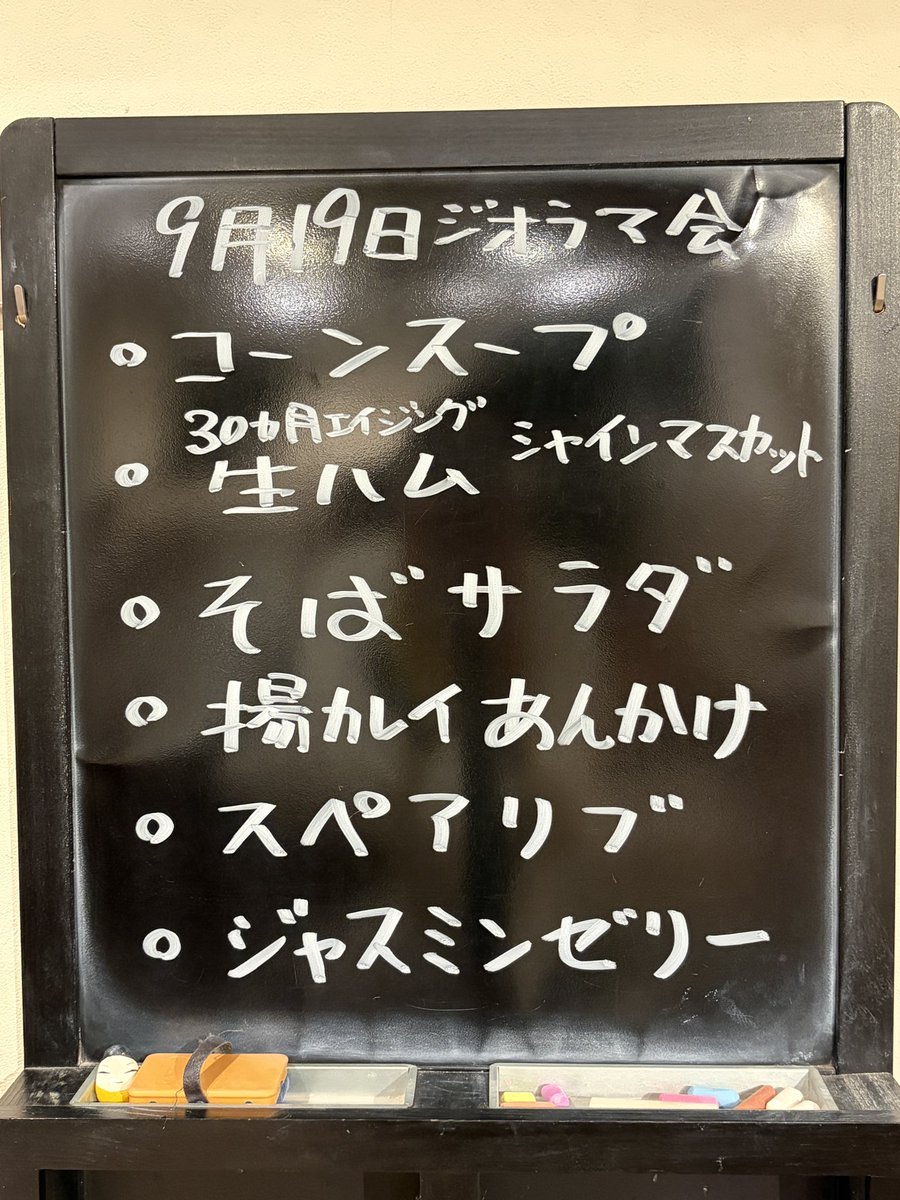 9月19日ジオラマ会
・コーンスープ
30ヵ月エイジング
・生ハム シャインマスカット
・そばサラダ
・揚カレイあんかけ
・スペアリブ
・ジャスミンゼリー